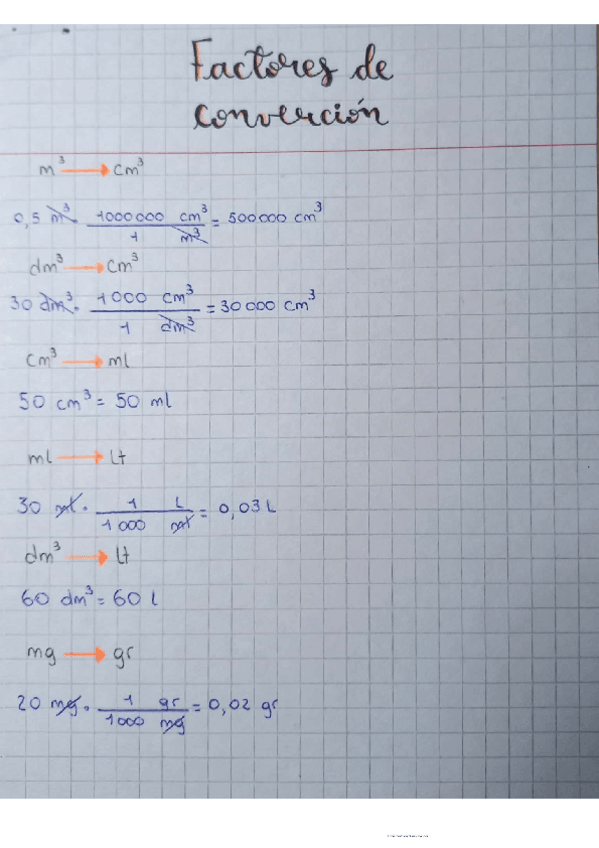 Factores de
converción
m³ → cm³
0,5 m³ · 1000000 cm³ / 1 m³ = 500000 cm³
dm³ → cm³
30 dm³ · 1000 cm³ / 1 dm³ = 30000 cm³
cm³ → ml
50 cm³ = 50 ml
ml → Lt
30 ml · 1 L / 1000 ml = 0,03 L
dm³ → Lt
60 dm³ = 60 l
mg → gr
20 mg · 1 gr / 1000 mg = 0,02 gr